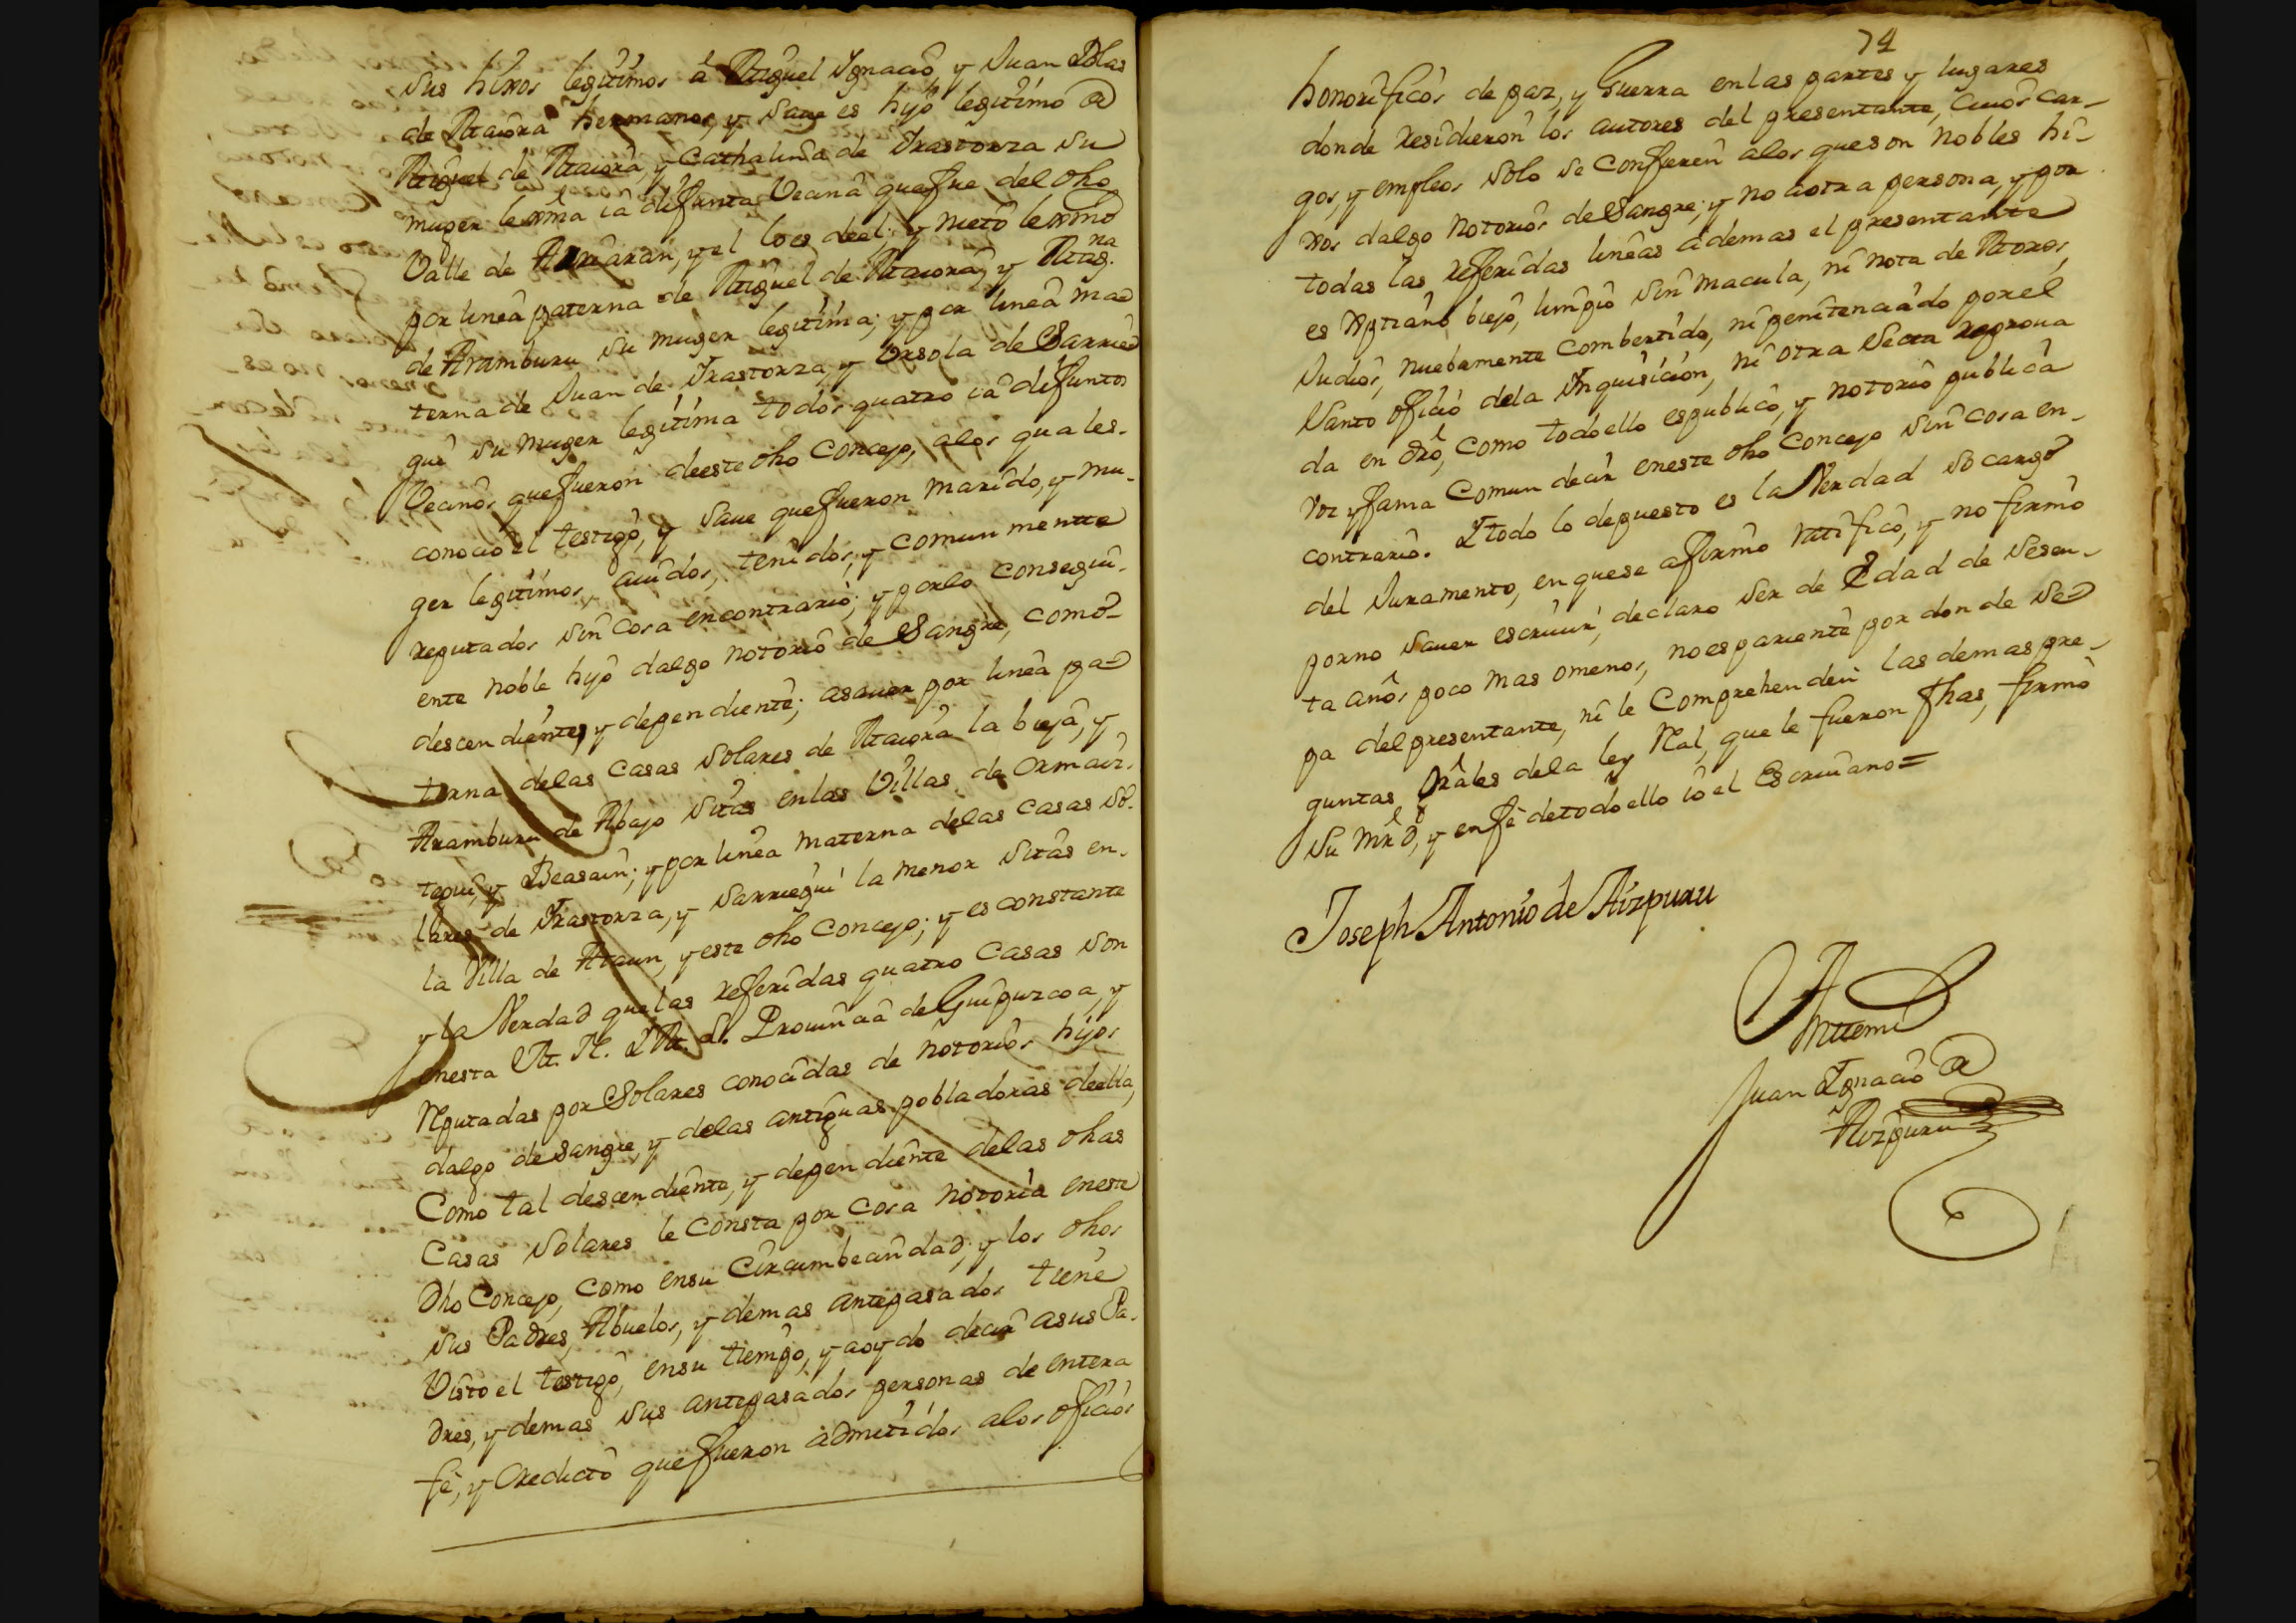 sus hixos legitimos â Miguel Ygnacio, y Juan Blas
de Maiora hermanos, y save es hijo legitimo de
Miguel de Maiora, y Cathalina de Yrastorza su
muger lexma ia difunta Vecina que fue del dho
Valle de Arnaran, y el lo es de el. y nieto lexmo
por linea paterna de Miguel de Maiora, y Mag.na
de Aramburu su muger legitima; y por linea ma
terna de Juan de Yrastorza, y Ursola de Sarrie
gui su muger legitima todos quatro ia difuntos
Vecinos que fueron de este dho Concejo, alos quales
conocio el testigo, y save que fueron marido, y mu-
ger legitimos, auidos, tenidos, y comun mente
reputados sin cosa en contrario; y por lo consegui-
ente noble hijo dalgo notorio de Sangre, como
descendiente, y dependiente; asauer por linea pa
terna delas Casas Solares de Maiora la bieja, y
Aramburu de Abajo sitas enlas Villas de Ormaiz-
tegui, y Beasain; y por linea materna delas Casas so-
lares de Yrastorza, y Sarriegui la menor sitas en
la Villa de Ataun, y este dho Concejo; y es constante
y la Verdad que las referidas quatro Casas son
enesta M. N. Y M. L. Prouincia de Guipuzcoa, y
Rputadas por Solares conocidas de notorios hijos
dalgo de sangre, y delas antiguas pobladoras de ella,
Como tal descendiente, y dependiente delas dhas
Casas Solares le Consta por Cosa notoria eneste
Dho Concejo, como ensu Circumbecindad; y los dhos
sus Padres, Abuelos, y demas antepasados tiene
Visto el testigo, ensu tiempo, y a oydo decir asus Pa-
dres, y demas sus antepasados personas de entera
fe, y Credicto que fueron admitidos alos oficios
74
honorificos de paz, y Guerra enlas partes y lugares
donde residieron los autores del presentante, Cuios car-
gos, y empleos solo se Confieren alos que son nobles hi-
xos dalgo notorios de Sangre; y no aotra persona, y por
todas las referidas lineas ademas el presentante
es Xptiano biejo, limpio sin macula, ni nota de Moros,
Judios, nuebamente Combertido, ni penitenciado por el
Santo oficio dela Ynquisicion, ni otra Secta reproua
da en dro, Como todo ello es publico, y notorio publica
voz y fama Comun decir eneste dho Concejo sin cosa en-
contrario. Y todo lo depuesto es la Verdad so cargo
del Juramento, en que se afirmo ratifico, y no firmo
porno sauer escriuir, declaro ser de Edad de sesen-
ta años poco mas omenos, no es pariente por don de se
pa del presentante, ni le Comprehenden las demas pre-
guntas Grâles dela ley Ral, que le fueron fhas, firmo
su mrd, y en fe de todo ello io el Escriuano=
Joseph Antonio de Aizpuru
Antemi
Juan Ygnacio de
Aizpuru